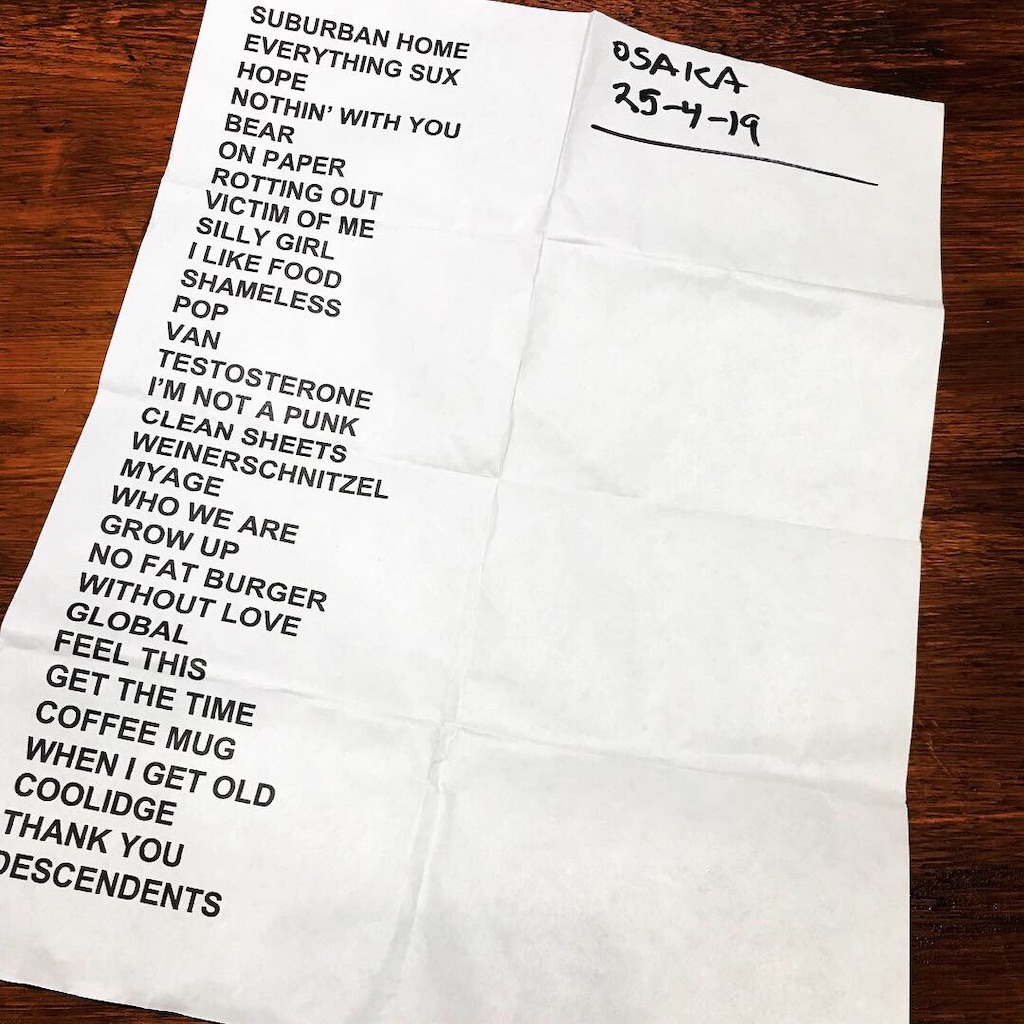 SUBURBAN HOME
EVERYTHING SUX
HOPE
NOTHIN' WITH YOU
BEAR
ON PAPER
ROTTING OUT
VICTIM OF ME
SILLY GIRL
I LIKE FOOD
SHAMELESS
POP
VAN
TESTOSTERONE
I'M NOT A PUNK
CLEAN SHEETS
WEINERSCHNITZEL
MYAGE
WHO WE ARE
GROW UP
NO FAT BURGER
WITHOUT LOVE
GLOBAL
FEEL THIS
GET THE TIME
COFFEE MUG
WHEN I GET OLD
COOLIDGE
THANK YOU
DESCENDENTS
OSAKA
25-4-19